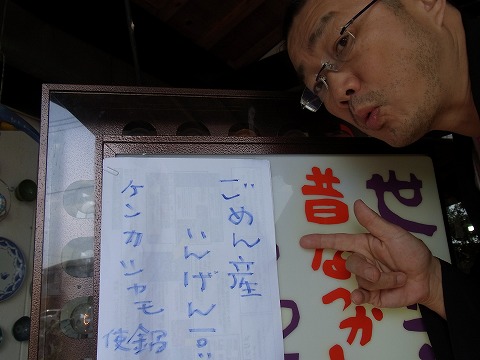 せ
昔なつか
ごめん産
いんげん
ケンカシャモ
使鍋